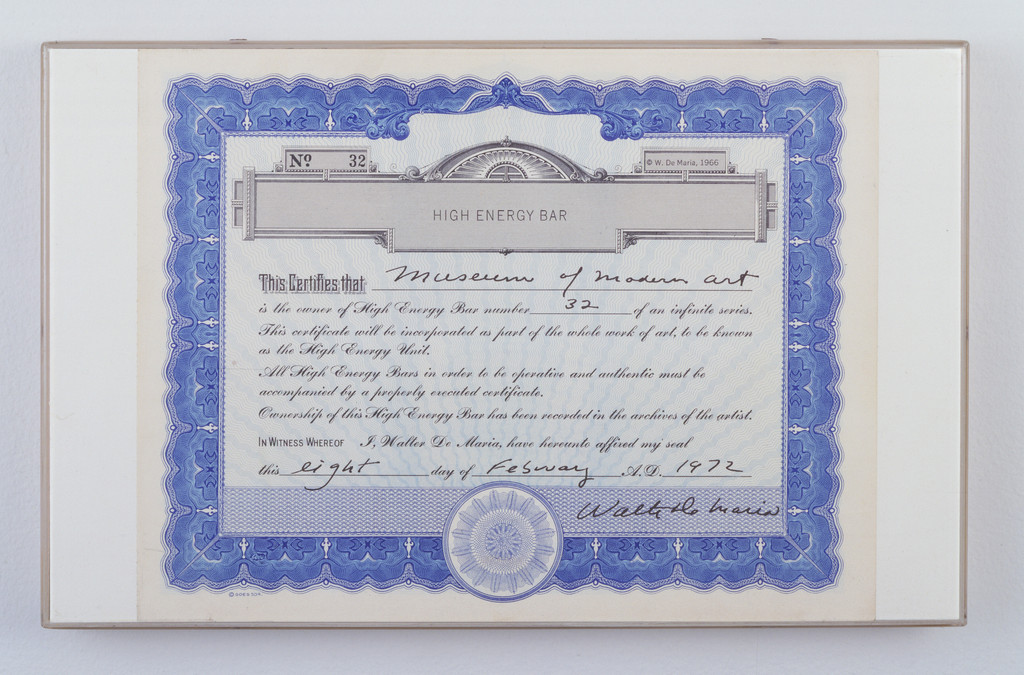 Nº 32
© W. De Maria, 1966
HIGH ENERGY BAR
This Certifies that Museum of Modern Art
is the owner of High Energy Bar number 32 of an infinite series.
This certificate will be incorporated as part of the whole work of art, to be known
as the High Energy Unit.
All High Energy Bars in order to be operative and authentic must be
accompanied by a properly executed certificate.
Ownership of this High Energy Bar has been recorded in the archives of the artist.
IN WITNESS WHEREOF I, Walter De Maria, have hereunto affixed my seal
this eight day of February A.D. 1972
Walter De Maria